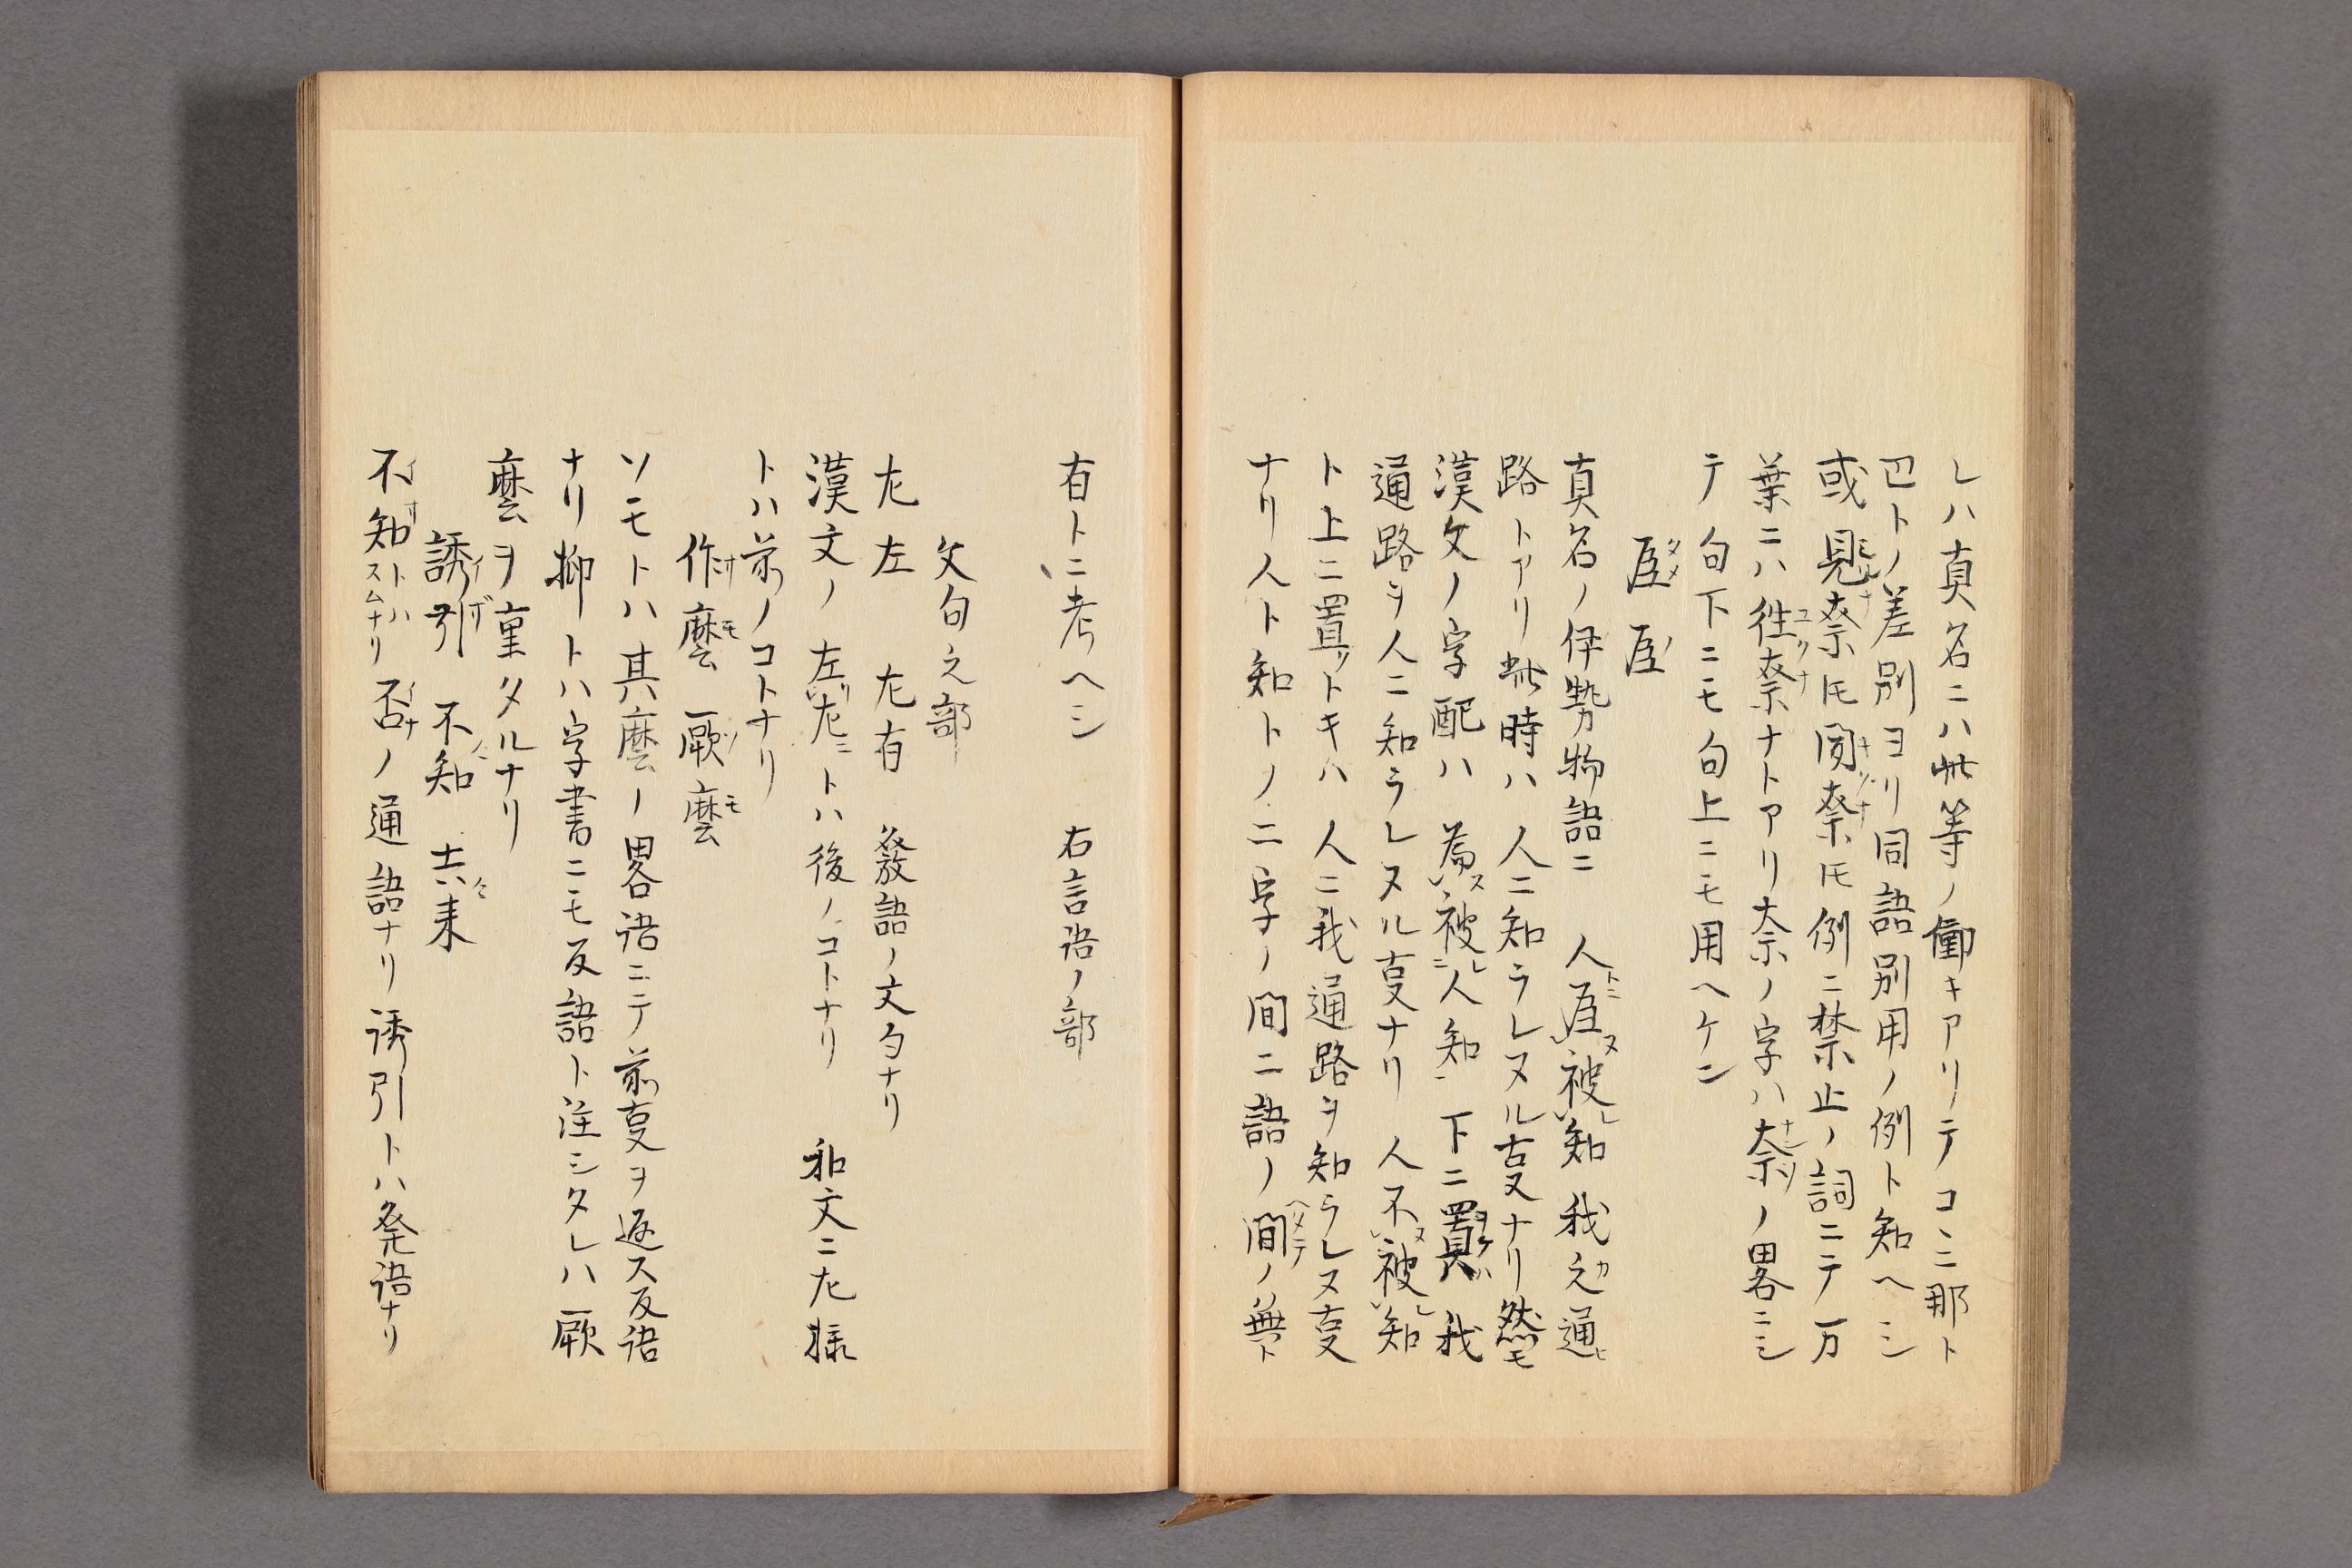 レハ真名ニハ此等ノ働キアリテコニ那ト
巴トノ差別ヨリ同語別用ノ例ト知ヘシ
或見奈ヒ聞奈ヒ例ニ禁止ノ詞ニテ万
葉ニハ徃奈ナトアリ奈ノ字ハ奈ノ畧ニシ
テ句下ニモ句上ニモ用ヘケン
真名ノ伊勢物語ニ 人 被知我之通
路トアリ此時ハ人ニ知ラレヌル叓ナリ然モ
漢文ノ字配ハ為被人知下ニ置ハ我
通路ヲ人ニ知ラレヌル叓ナリ人不被知
ト上ニ置トキハ人ニ我通路ヲ知ラレヌ叓
ナリ人ト知トノ二字ノ間ニ語ノ間ノ無ト
有トニ考ヘシ 右言語ノ部
文句之部
𠂇左 𠂇有 發語ノ文句ナリ
漢文ノ左𠂇トハ後ノコトナリ 和文ニ𠂇様
トハ前ノコトナリ
作麼 厥麼
ソモトハ其麼ノ畧語ニテ前叓ヲ返ス反語
ナリ抑トハ字書ニモ反語ト注シタレハ厥
麼ヲ重タルナリ
誘引 不知 去来
不知トハスムナリ否ノ通語ナリ誘引トハ発語ナリ